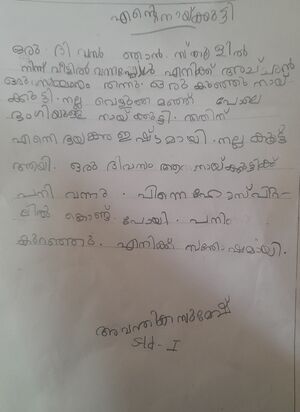 എന്റെ നായ്ക്കുട്ടി
ഒരു ദിവസം ഞാൻ സ്കൂളിൽ
നിന്ന് വീട്ടിൽ വന്നപ്പോൾ എനിക്ക് അച്ചച്ഛൻ
ഒരു സമ്മാനം തന്നു. ഒരു കുഞ്ഞു നായ
ക്കുട്ടി. നല്ല വെളുത്ത മഞ്ഞ് പോലെ
ഭംഗിയുള്ള നായ്ക്കുട്ടി. അതിന്
എന്നെ ഇഷ്ടമായി. നല്ല കൂട്ട്
ആയി. ഒരു ദിവസം ആ നായ്കുട്ടിക്ക്
പനി വന്നു. പിന്നെ ഹോസ്പിറ്റ
ലിൽ കൊണ്ട് പോയി. പനി
കുറഞ്ഞു. എനിക്ക് സന്തോഷമായി.
അവന്തിക സുമേഷ്
Std - I